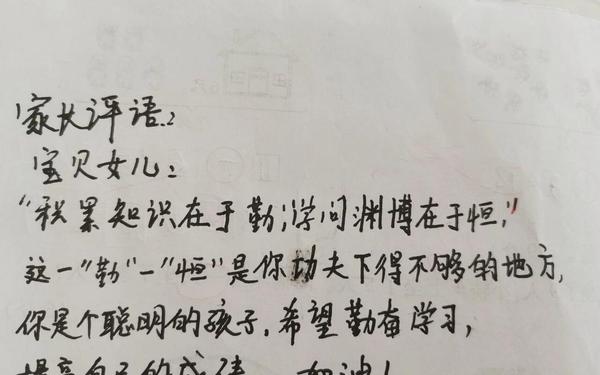 家长评语:
宝贝女儿:
"积累知识在于勤;学问渊博在于恒,"
这一"勤"一"恒"是你功夫下得不够的地方,
你是个聪明的孩子,希望勤奋学习,
提高自己的成绩 加油!